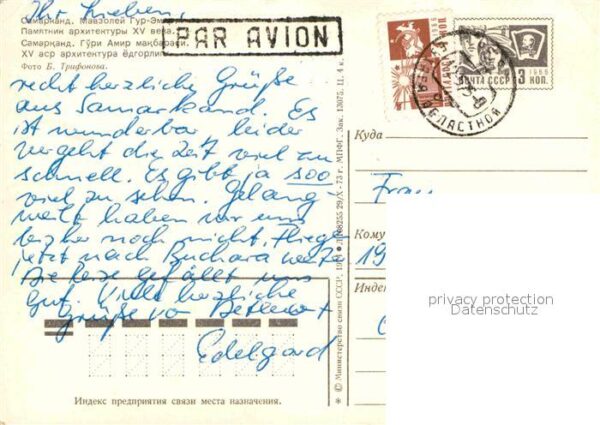 Ihr Lieben,
Самарканд. Мавзолей Гур-Эмир
Памятник архитектуры XV века.
Самарқанд. Гўри Амир мақбараси.
XV аср архитектура ёдгорлиги
Фото Б. Трифонова.
PAR AVION
recht herzliche Grüße
aus Samarkand. Es
ist wunderbar, leider
vergeht die Zeit viel zu
schnell. Es gibt ja sooo
viel zu sehen. Gelang-
weilt haben wir uns
bisher noch nicht. Fliegen
jetzt nach Buchara weiter
Die Reise gefällt uns
gut. Viele herzliche
Grüße von Detlev u
Edelgard
Индекс предприятия связи места назначения.
© Министерство связи СССР, 1974
29/X-73 г. МПФГ. Зак. 13075. Ц. 4 к.
ПОЧТА СССР 3 КОП.
1966
ОБЛАСТНОЙ
Куда
Frau
Кому
19
Индекс
privacy protection
Datenschutz